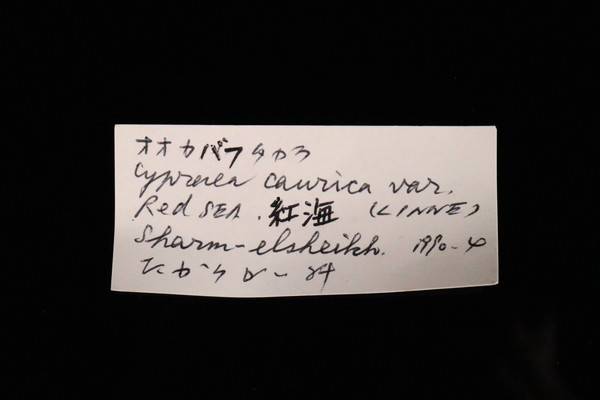 オオカバフタカラ
Cypraea caurica var.
Red SEA. 紅海 (LINNE)
Sharm-elsheikh. 1990-4